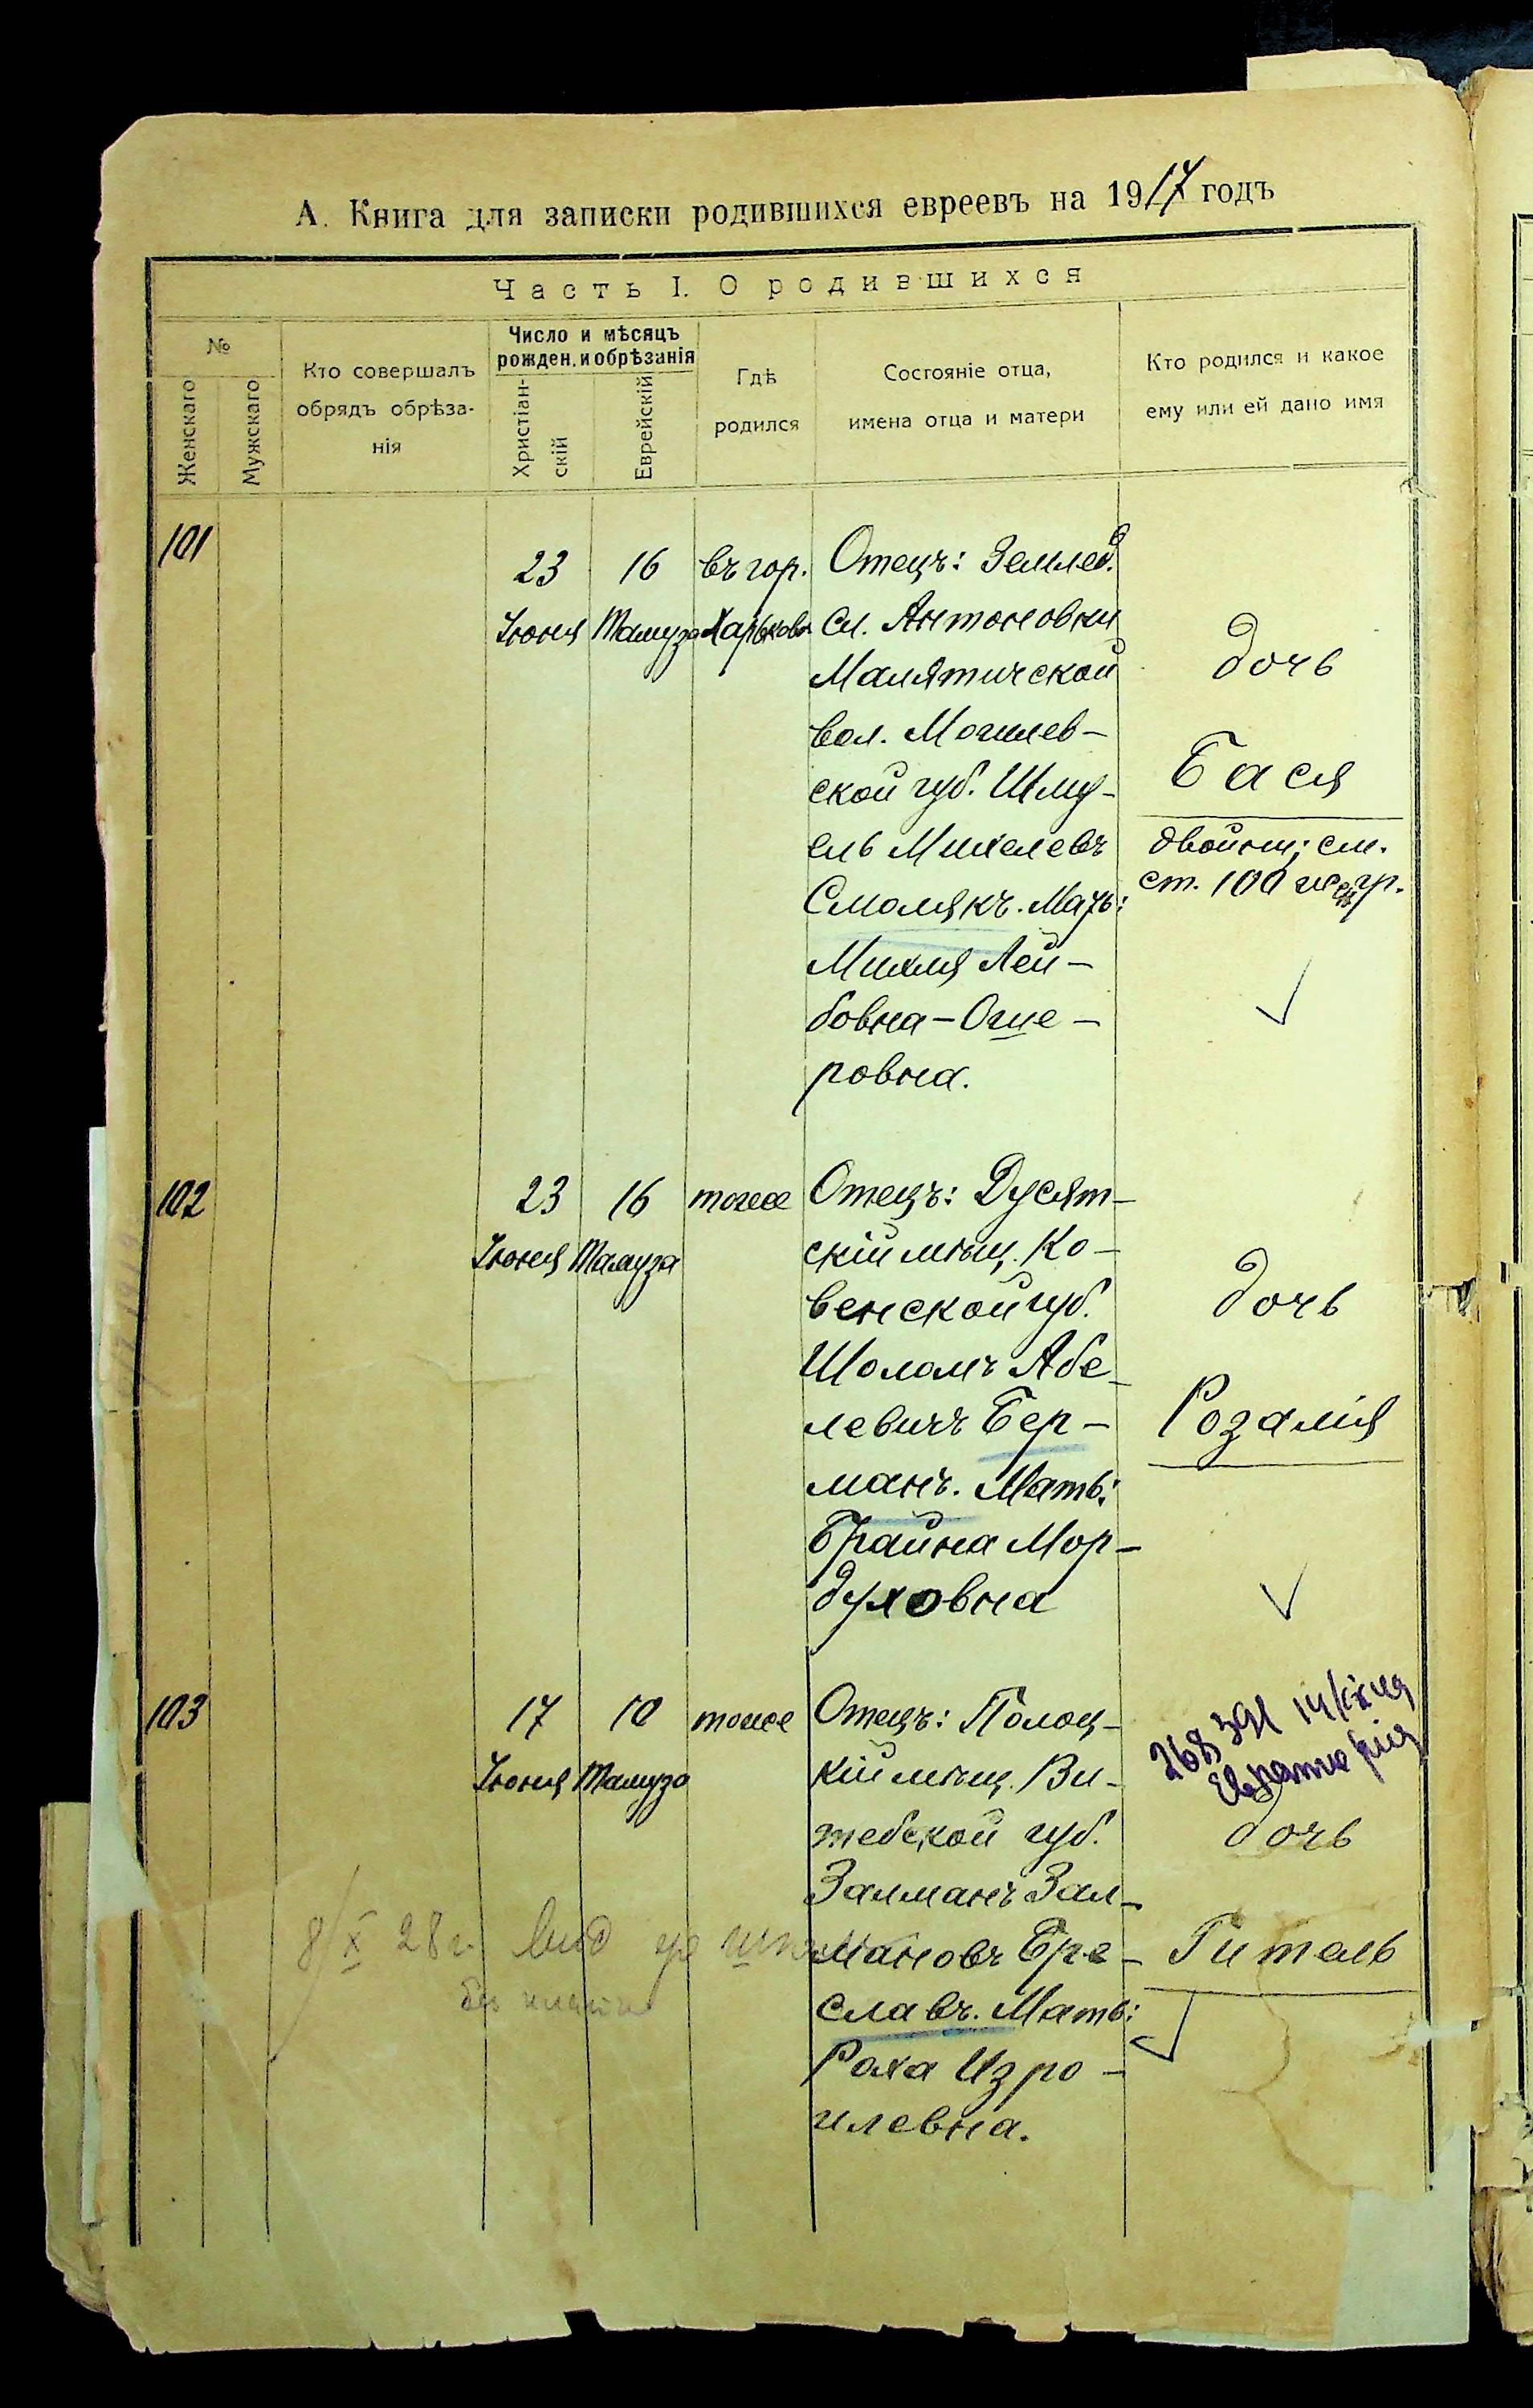 А. Книга для записки родившихся евреевъ на 1917 годъ
Часть I. О родившихся
№
Женскаго
Мужскаго
Кто совершалъ
обрядъ обрѣза-
нія
Число и мѣсяцъ
рожден. и обрѣзанія
Христіан-
скій
Еврейскій
Гдѣ
родился
Состояніе отца,
имена отца и матери
Кто родился и какое
ему или ей дано имя
101
23
Іюня
16
Тамуза
въ гор.
Харьковѣ
Отецъ: Землед.
сл. Антоновки
Малятичской
вол. Могилев-
ской губ. Шму-
ель Михелевъ
Смолякъ. Мать:
Михля Лей-
бовна-Оше-
ровна.
дочь
Бася
двойни; см.
ст. 100
102
23
Іюня
16
Тамуза
тоже
Отецъ: Дусят-
скій мѣщ. Ко-
венской губ.
Шоломъ Абе-
левичъ Бер-
манъ. Мать:
Брайна Мор-
духовна
дочь
Розалія
103
17
Іюня
10
Тамуза
тоже
Отецъ: Полоц-
кій мѣщ. Ви-
тебской губ.
Залманъ Зал-
мановъ Бре-
славъ. Мать:
Роха Изро-
илевна.
дочь
Гитель
8/X 28 г.